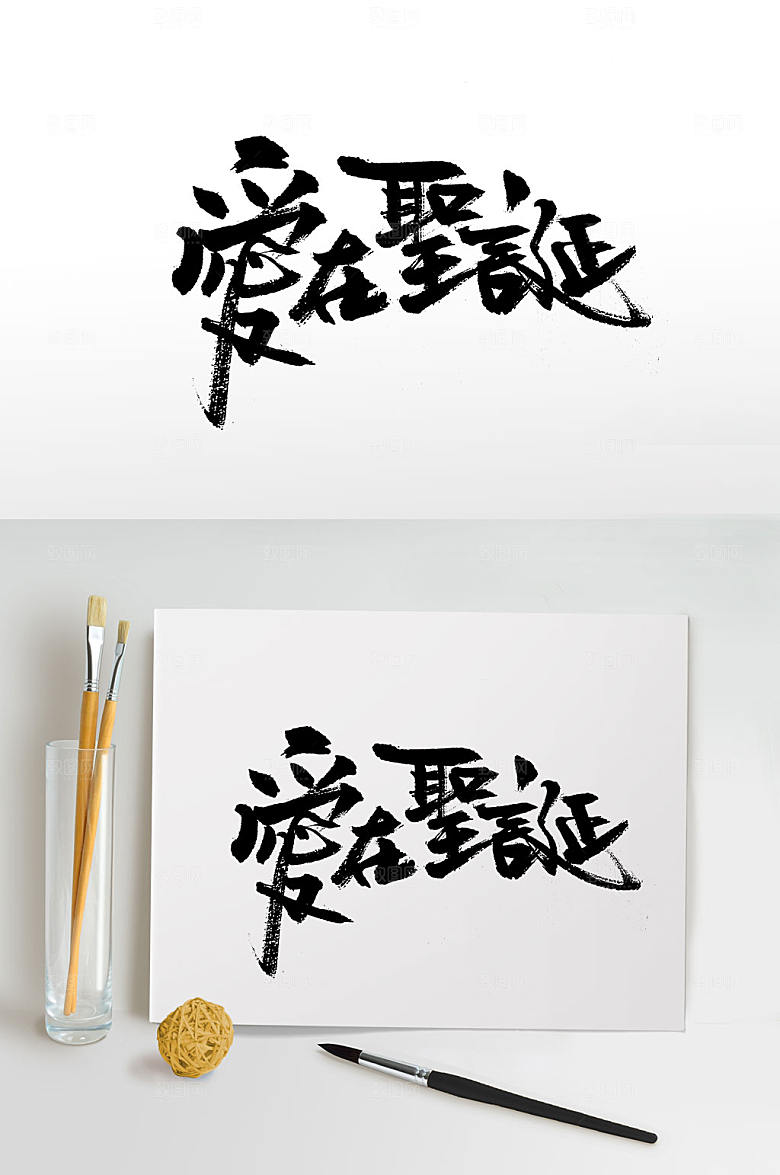 爱在聖誕
爱在聖誕